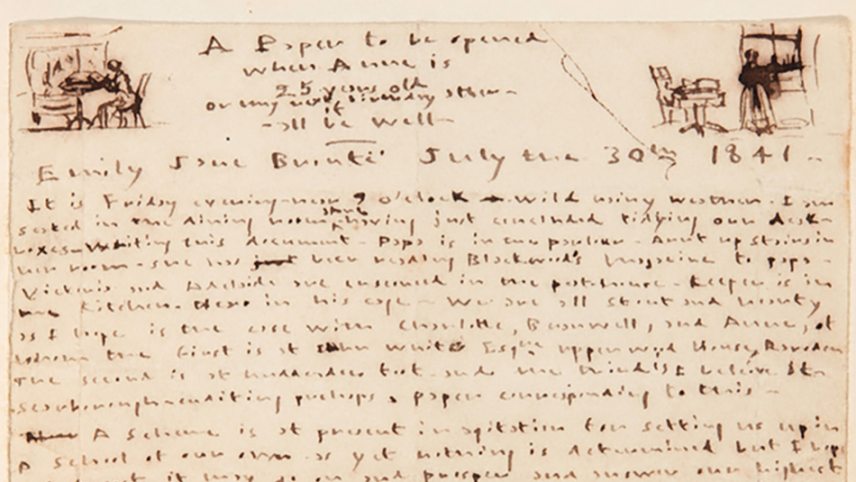 A Paper to be opened
when Anne is
25 years old
or my next birthday after -
if
- all be well -
Emily Jane Brontë July the 30th 1841 -
It is Friday evening - near 9 o'clock - wild rainy weather - I am
seated in the dining room alone having just concluded tidying our desk-
boxes - writing this document - Papa is in the parlour - Aunt up stairs in
her room - she has just been reading Blackwood's Magazine to papa -
Victoria and Adelaide are ensconced in the peat-house - Keeper is in
the Kitchen - Hero in his cage - We are all stout and hearty
as I hope is the case with Charlotte, Branwell, and Anne, of
whom the first is at John White Esqre upperwood House, Rawden
The second is at Luddenden foot and the third is I beleive at
Scarborough - enditing perhaps a paper corresponding to this -
A Scheme is at present in agitation for setting us up in
A School of our own as yet nothing is determined but I hope
it may go on and prosper and answer our highest